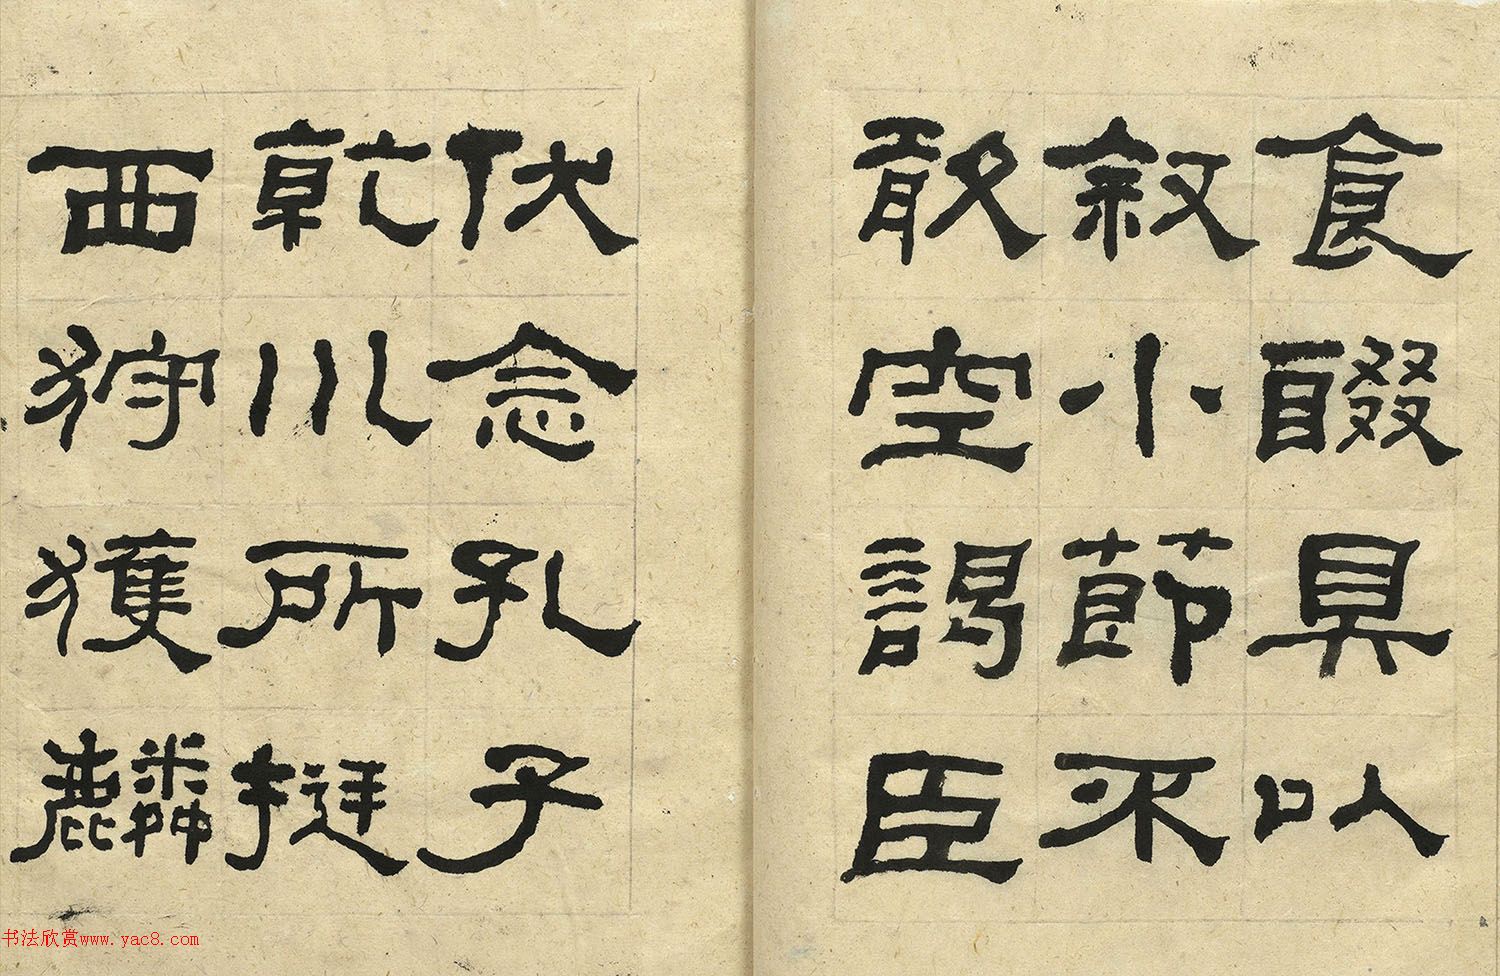 食醊具以
叙小節不
敢空謁臣
伏念孔子
乾川所挺
西狩獲麟
书法欣赏www.yac8.com